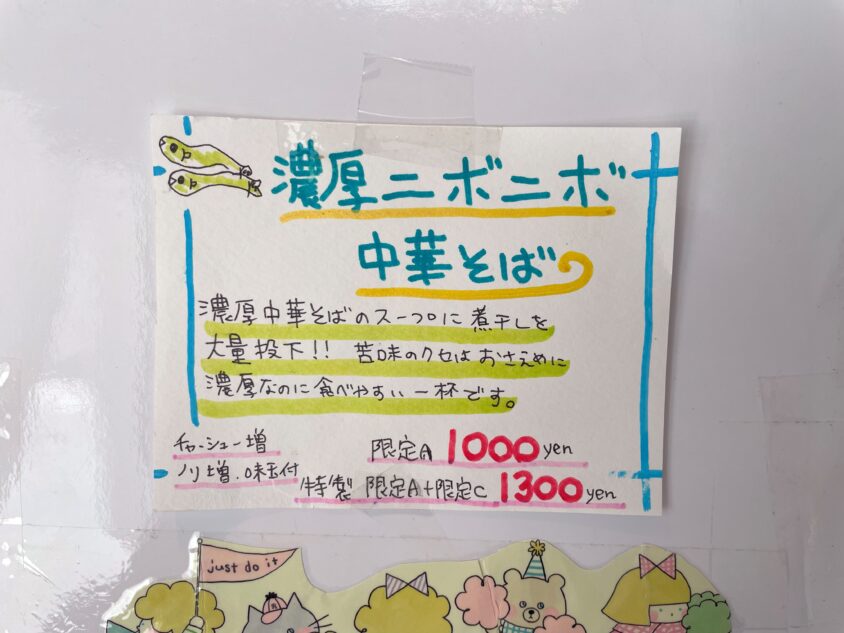 濃厚ニボニボ
中華そば
濃厚中華そばのスープに煮干しを
大量投下!! 苦味のクセはおさえめに
濃厚なのに食べやすい一杯です。
チャーシュー増
ノリ増.味玉付
限定A 1000yen
特製 限定A+限定C 1300yen
just do it